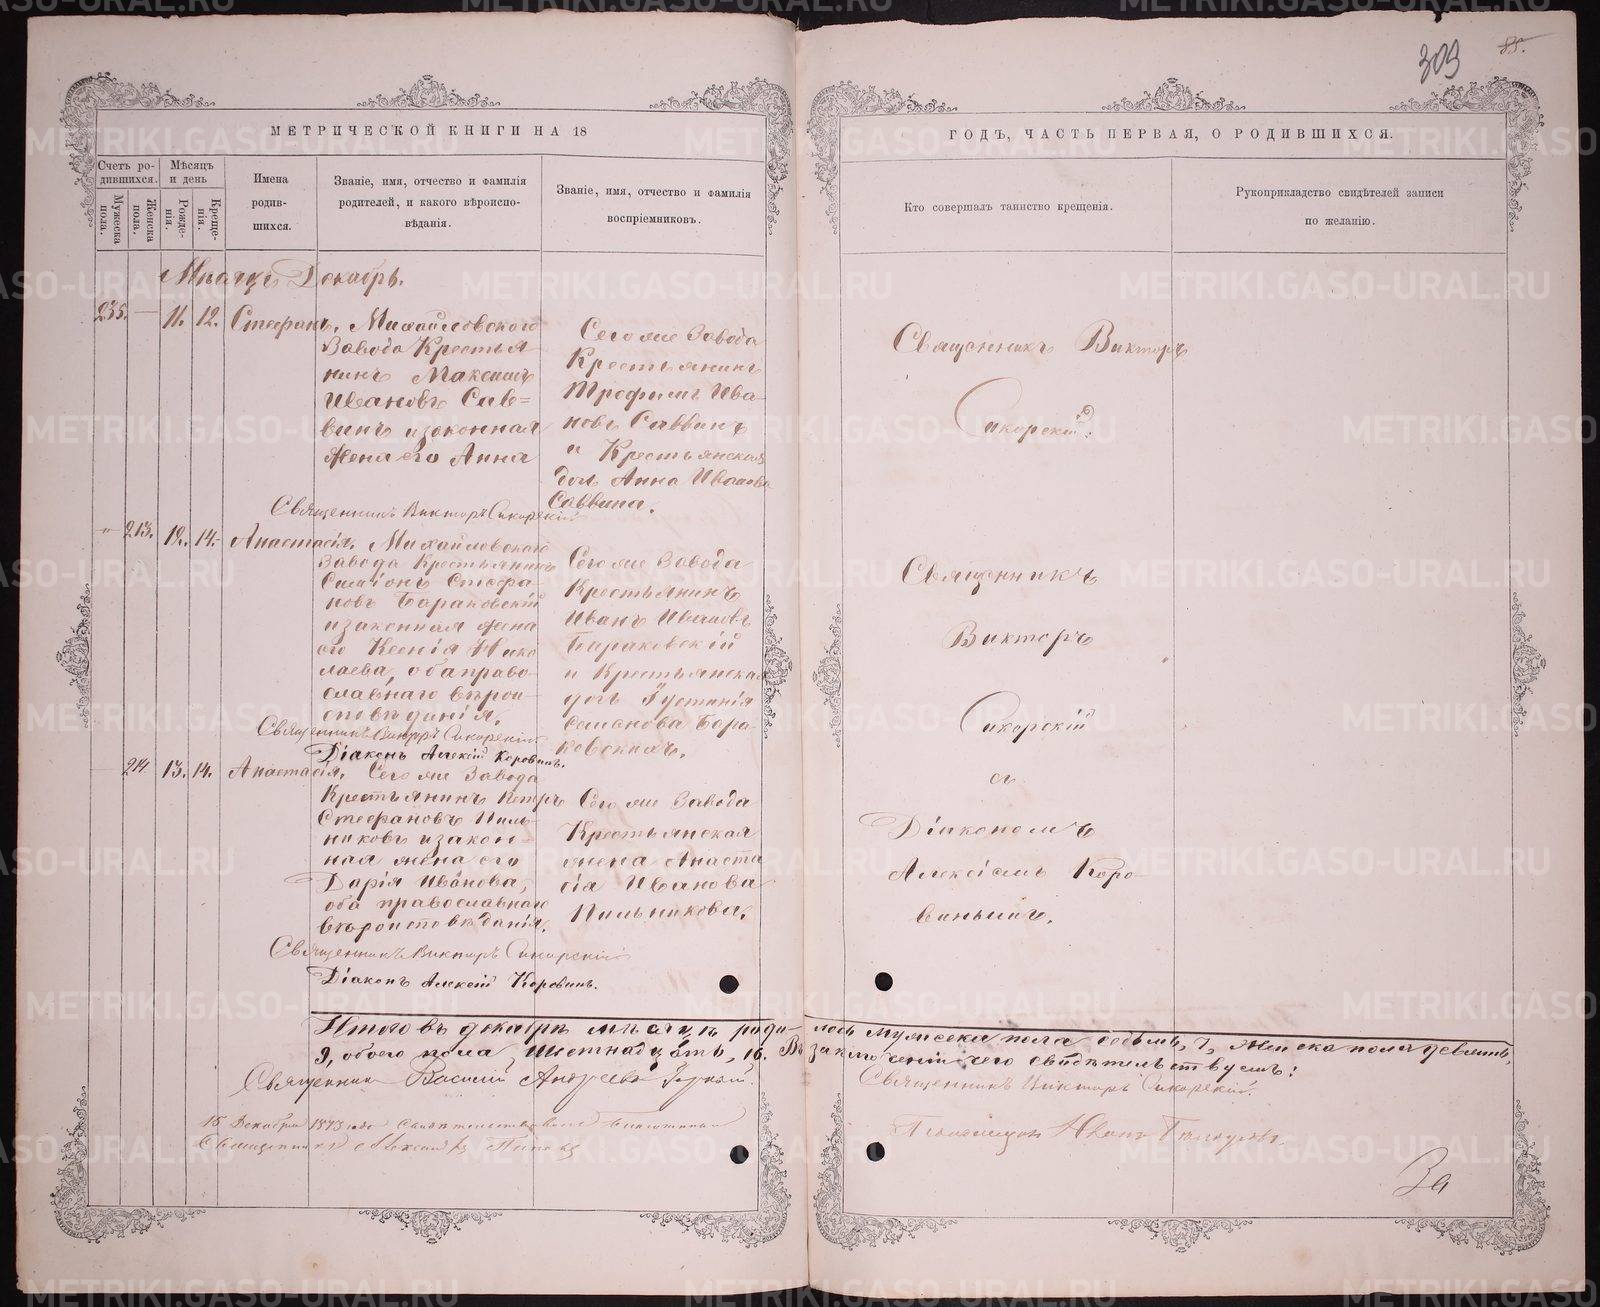 309
88.
МЕТРИЧЕСКОЙ КНИГИ НА 18
ГОДЪ, ЧАСТЬ ПЕРВАЯ, О РОДИВШИХСЯ.
Счетъ ро-
дившихся.
Мужеска
пола.
Женска
пола.
Мѣсяцъ
и день
Рожде-
нія.
Креще-
нія.
Имена
родив-
шихся.
Званіе, имя, отчество и фамилія
родителей, и какого вѣроиспо-
вѣданія.
Званіе, имя, отчество и фамилія
воспріемниковъ.
Кто совершалъ таинство крещенія.
Рукоприкладство свидѣтелей записи
по желанію.
Мѣсяцъ Декабрь.
235. — 11. 12. Стефанъ.
Михайловскаго
Завода Крестья
нинъ Максимъ
Ивановъ Сав=
винъ и законная
жена его Анна
Сего же Завода
Крестьянинъ
Трофимъ Ива
новъ Саввинъ
и Крестьянская
доч Анна Иванова
Саввина.
Священникъ Викторъ
Сикорскій.
Священникъ Викторъ Сикорскій
" 213. 12. 14. Анастасія.
Михайловскаго
Завода Крестьянинъ
Симіонъ Стефа-
новъ Бараковскій
и законная жена
его Ксенія Нико
лаева, оба право-
славнаго вѣрои-
сповѣданія.
Сего же Завода
Крестьянинъ
Иванъ Ивановъ
Бараковскій
и Крестьянская
дочь Іустинія
Семенова Бара-
ковскихъ.
Священникъ
Викторъ
Сикорскій
съ
Діакономъ
Алексіемъ Коро-
винымъ.
Священникъ Викторъ Сикорскій
Діаконъ Алексій Коровинъ.
214 13. 14. Анастасія.
Сего же Завода
Крестьянинъ Петръ
Стефановъ Пиль-
никовъ и закон-
ная жена его
Дарія Иванова,
оба православнаго
вѣроисповѣданія.
Сего же Завода
Крестьянская
жена Анаста
сія Иванова
Пильникова.
Священникъ Викторъ Сикорскій
Діаконъ Алексій Коровинъ.
Итого въ декабрѣ мѣсяцѣ роди- лось мужеска пола седьмъ, 7, женска пола девять,
9, обоего пола шестнадцать, 16. Въ заключеніи сего свидѣтельствуемъ:
Священник Василій Андреевъ
Священникъ Викторъ Сикорскій.
15 Декабря 1873 года
Священникъ
Псаломщик Иванъ
За